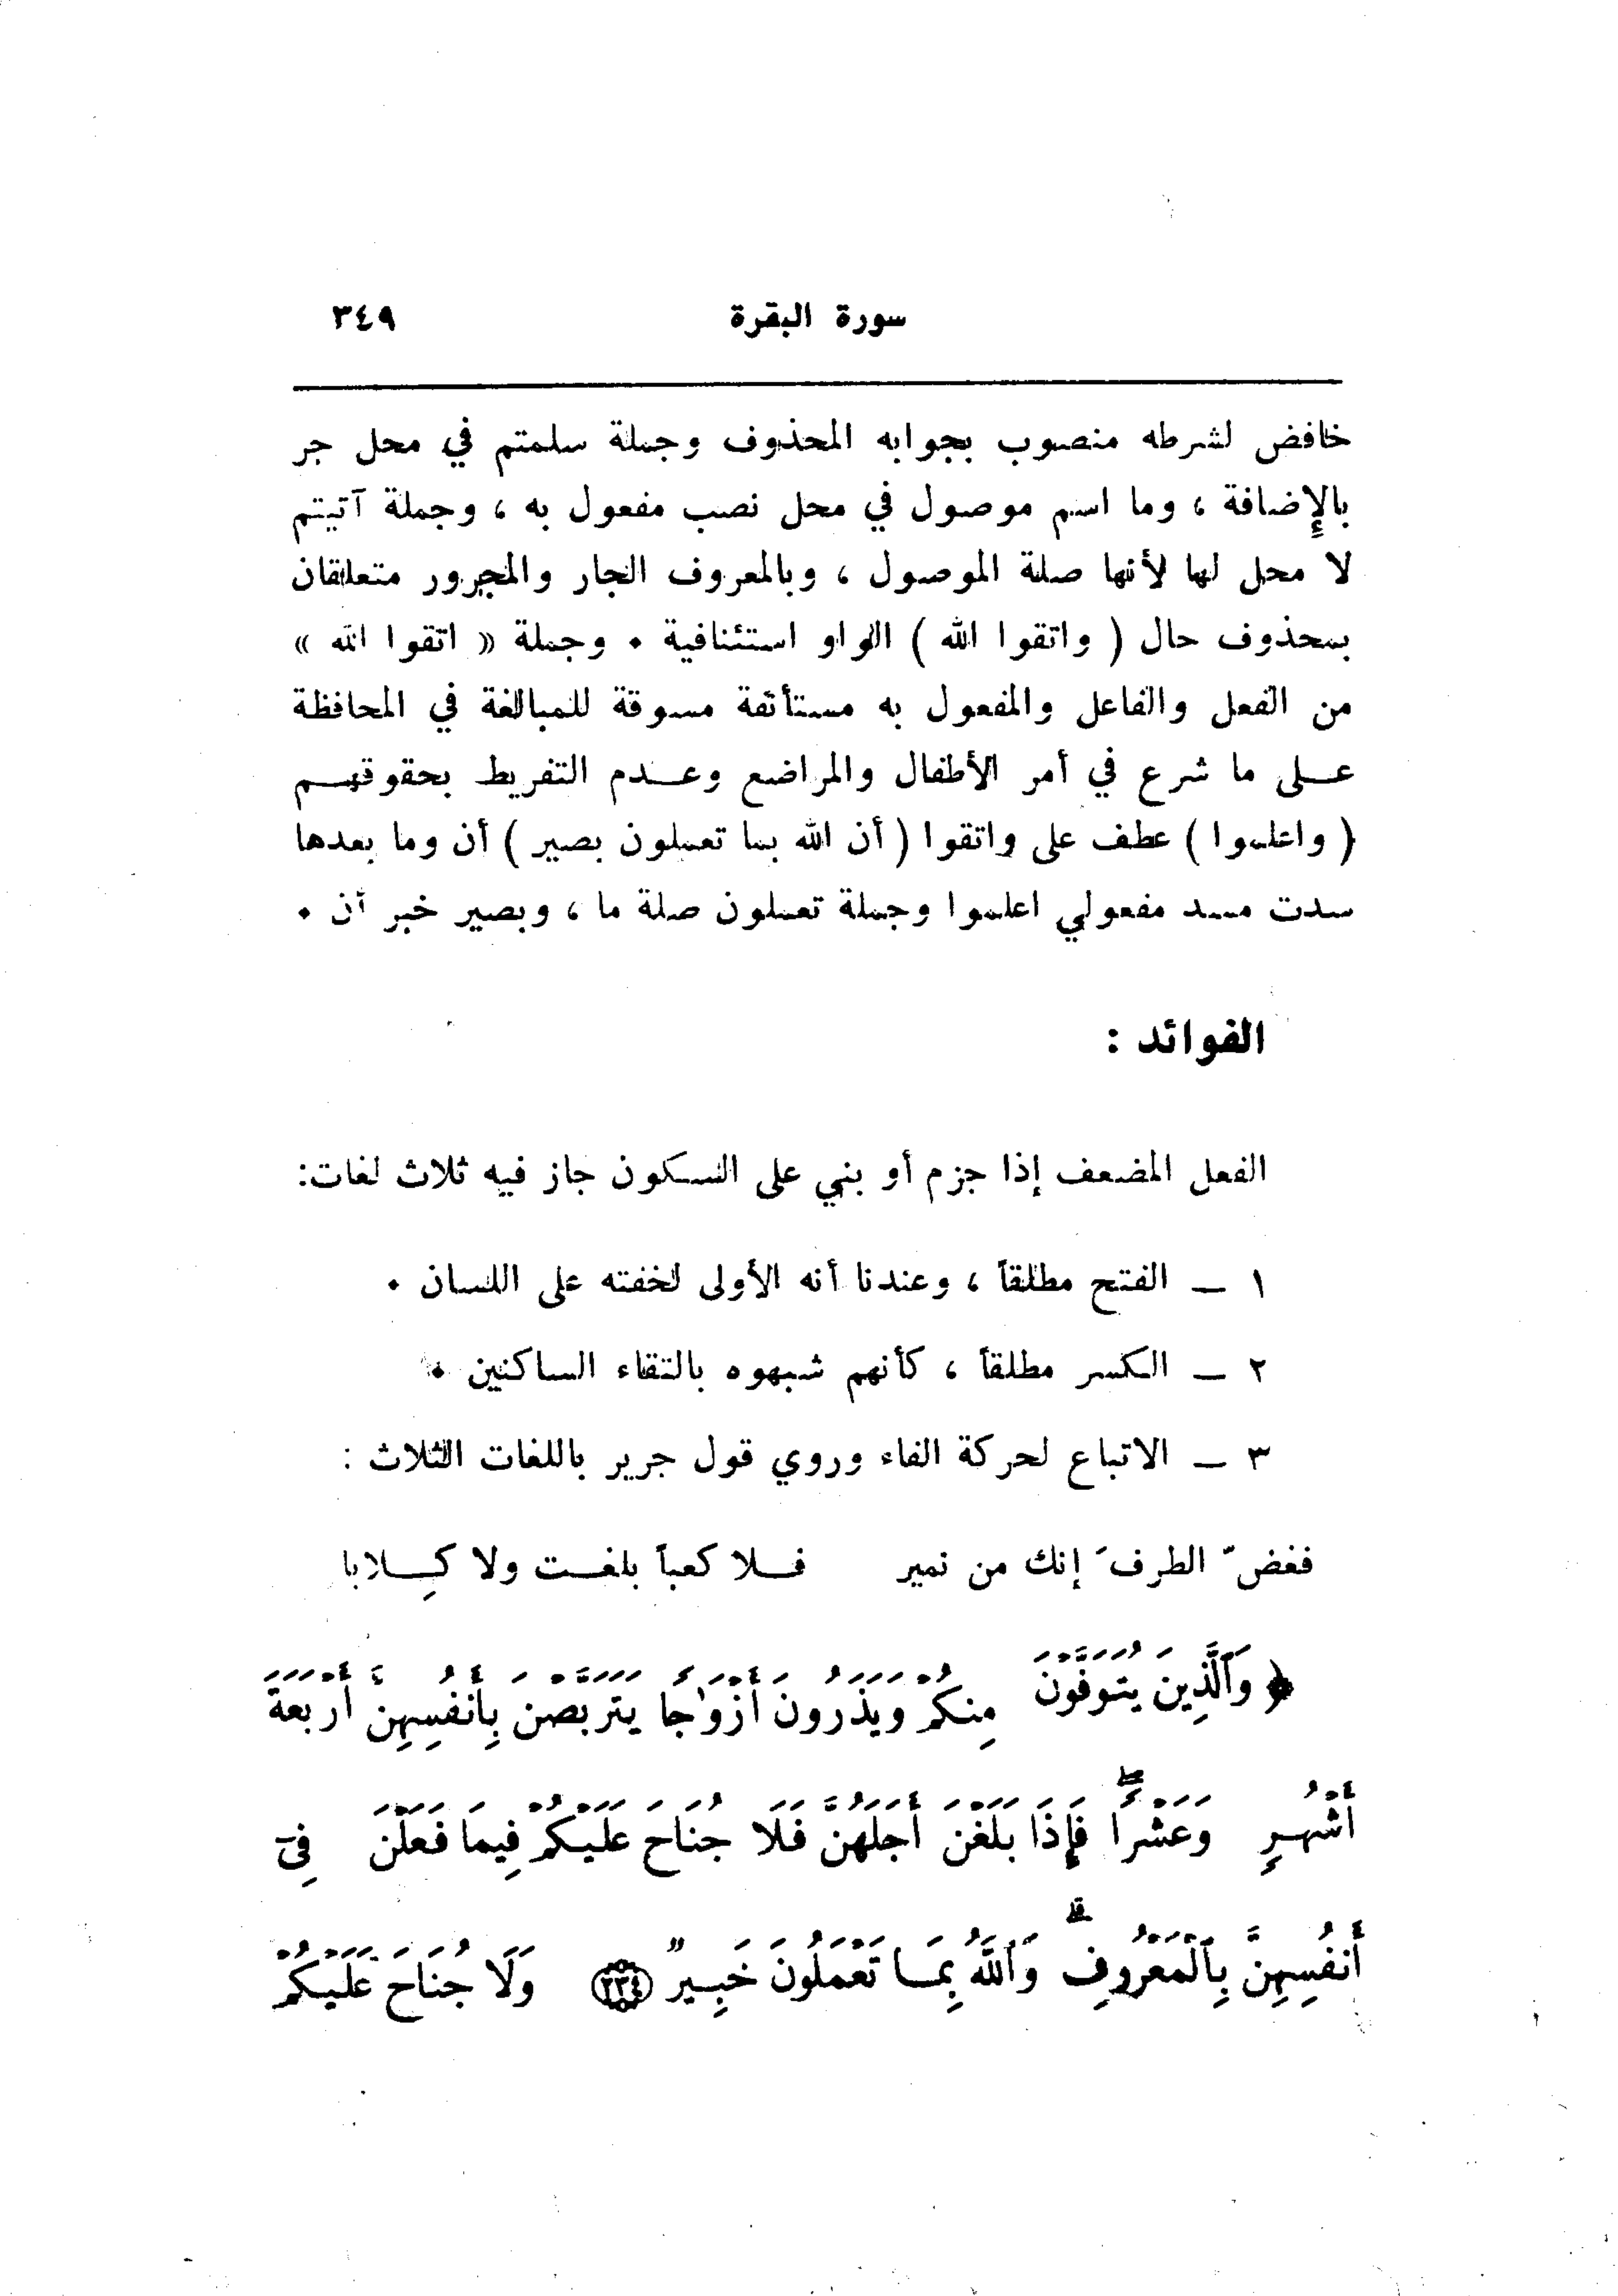 سورة البقرة ٣٤٩
خافض لشرطه منصوب بجوابه المحذوف وجملة سلمتم في محل جر
بالإضافة ، وما اسم موصول في محل نصب مفعول به ، وجملة آتيتم
لا محل لها لأنها صلة الموصول ، وبالمعروف الجار والمجرور متعلقان
بمحذوف حال ( واتقوا الله ) الواو استئنافية ٠ وجملة « اتقوا الله »
من الفعل والفاعل والمفعول به مستأنفة مسوقة للمبالغة في المحافظة
عـلى ما شرع في أمر الأطفال والمراضع وعـدم التفريط بحقوقهـم
( واعلموا ) عطف على واتقوا ( أن الله بما تعملون بصير ) أن وما بعدها
سدت مسد مفعولي اعلموا وجملة تعملون صلة ما ، وبصير خبر أن ٠
الفوائد :
الفعل المضعف إذا جزم أو بني على السكون جاز فيه ثلاث لغات:
١ ــ الفتح مطلقاً ، وعندنا أنه الأولى لخفته على اللسان ٠
٢ ــ الكسر مطلقاً ، كأنهم شبهوه بالتقاء الساكنين ٠
٣ ــ الاتباع لحركة الفاء وروي قول جرير باللغات الثلاث :
فغضّ الطرفَ إنك من نمير فـلا كعباً بلغـت ولا كِـلابا
﴿ وَٱلَّذِينَ يُتَوَفَّوْنَ مِنكُمْ وَيَذَرُونَ أَزْوَٰجًا يَتَرَبَّصْنَ بِأَنفُسِهِنَّ أَرْبَعَةَ
أَشْهُرٍ وَعَشْرًا ۖ فَإِذَا بَلَغْنَ أَجَلَهُنَّ فَلَا جُنَاحَ عَلَيْكُمْ فِيمَا فَعَلْنَ فِىٓ
أَنفُسِهِنَّ بِٱلْمَعْرُوفِ ۗ وَٱللَّهُ بِمَا تَعْمَلُونَ خَبِيرٌ ﴿٢٣٤﴾ وَلَا جُنَاحَ عَلَيْكُمْ